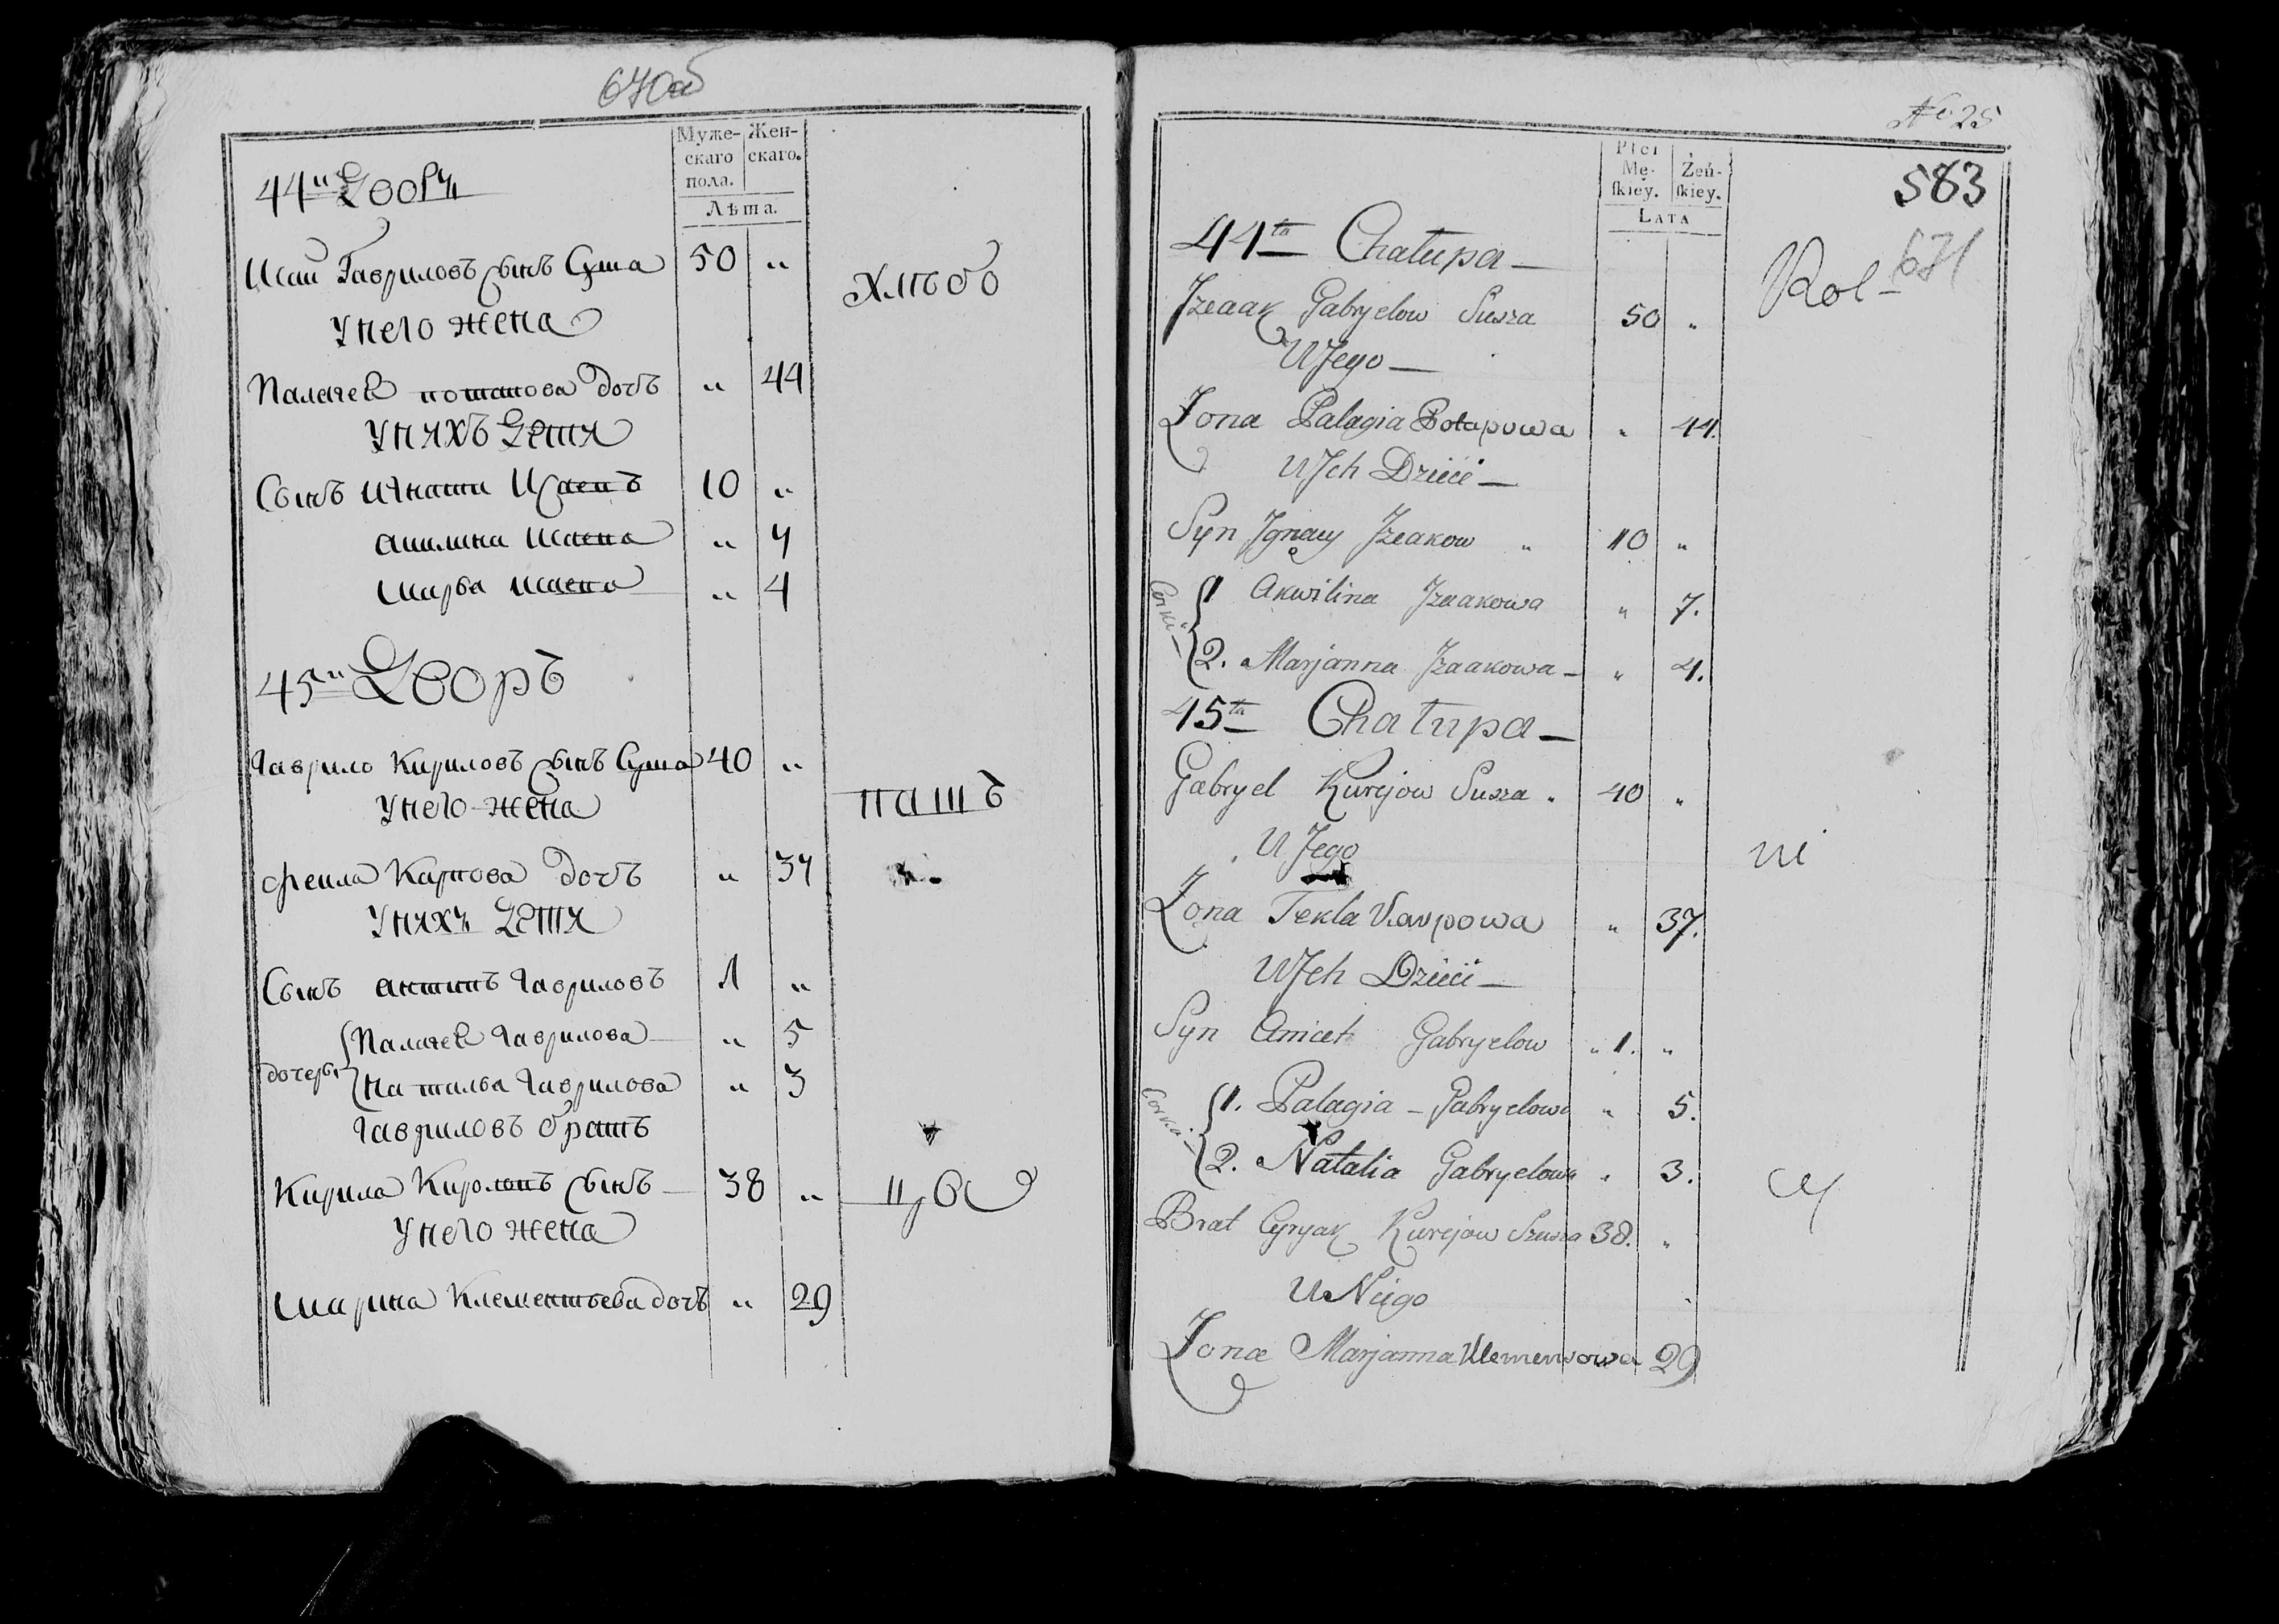 670об
Муже-
скаго
пола.
Жен-
скаго.
Лѣта.
44й Дворъ
Исай Гавриловъ сынъ Суша 50 "
Хлѣбо
У него жена
Палагея потапова дочъ " 44
У нихъ Дети
Сынъ Игнати Исаевъ 10 "
акилина Исаева " 7
Марья Исаева " 4
45й Дворъ
Гаврило Кириловъ сынъ Суша 40 "
У него жена
пашъ
Фекла Карпова дочъ " 37
У нихъ Дети
Сынъ антипъ Гавриловъ 1 "
дочеры
Палагея Гаврилова " 5
Наталья Гаврилова " 3
Гавриловъ братъ
Кирила Кириловъ сынъ 38 "
У него жена
Марина Клементьева дочъ " 29
№ 25
Płci
Mę-
ſkiey.
Żeń-
ſkiey.
LATA
583
671
44ta Chałupa
Rol-
Izaak Gabryelow Susza 50 "
U Jego
Żona Palagia Potapowa " 44.
U Ich Dzieci
Syn Ignacy Izaakow " 10 "
Corki
1 Akwilina Izaakowa " 7.
2. Marjanna Izaakowa " 4.
45ta Chałupa
Gabryel Kuryjow Susza " 40 "
U Jego
ni
Żona Tekla Karpowa " 37.
U Ich Dzieci
Syn Anicet Gabryelow " 1. "
Corki
1. Palagia Gabryelowa " 5.
2. Natalia Gabryelowa " 3.
cy
Brat Cyryak Kuryjow Szusza 38. "
U Niego
Żona Marjanna Klemensowa 29